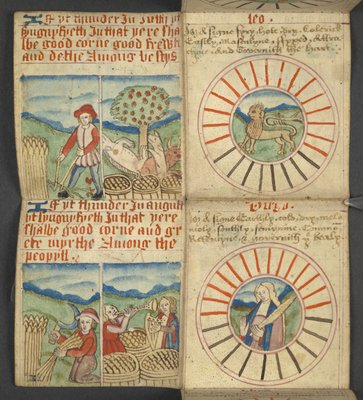 If yt thunder In Iuthi yt
syngnyfyeth In that yere sha
lbe good corne good
and dethe Among bestys
leo.
is A signe fyry, hote, dry, Colerick
Estly, Masculyne, fyxed,
And governith the hart.
If yt thunder in August
yt syngnyfyeth In that yere
shalbe good corne and gr
ete myrthe Among the
peopyll.
Virgo.
is A signe Earthly, cold, dry, melan
coly, southly, femynine, Comune
governith ye bealy.